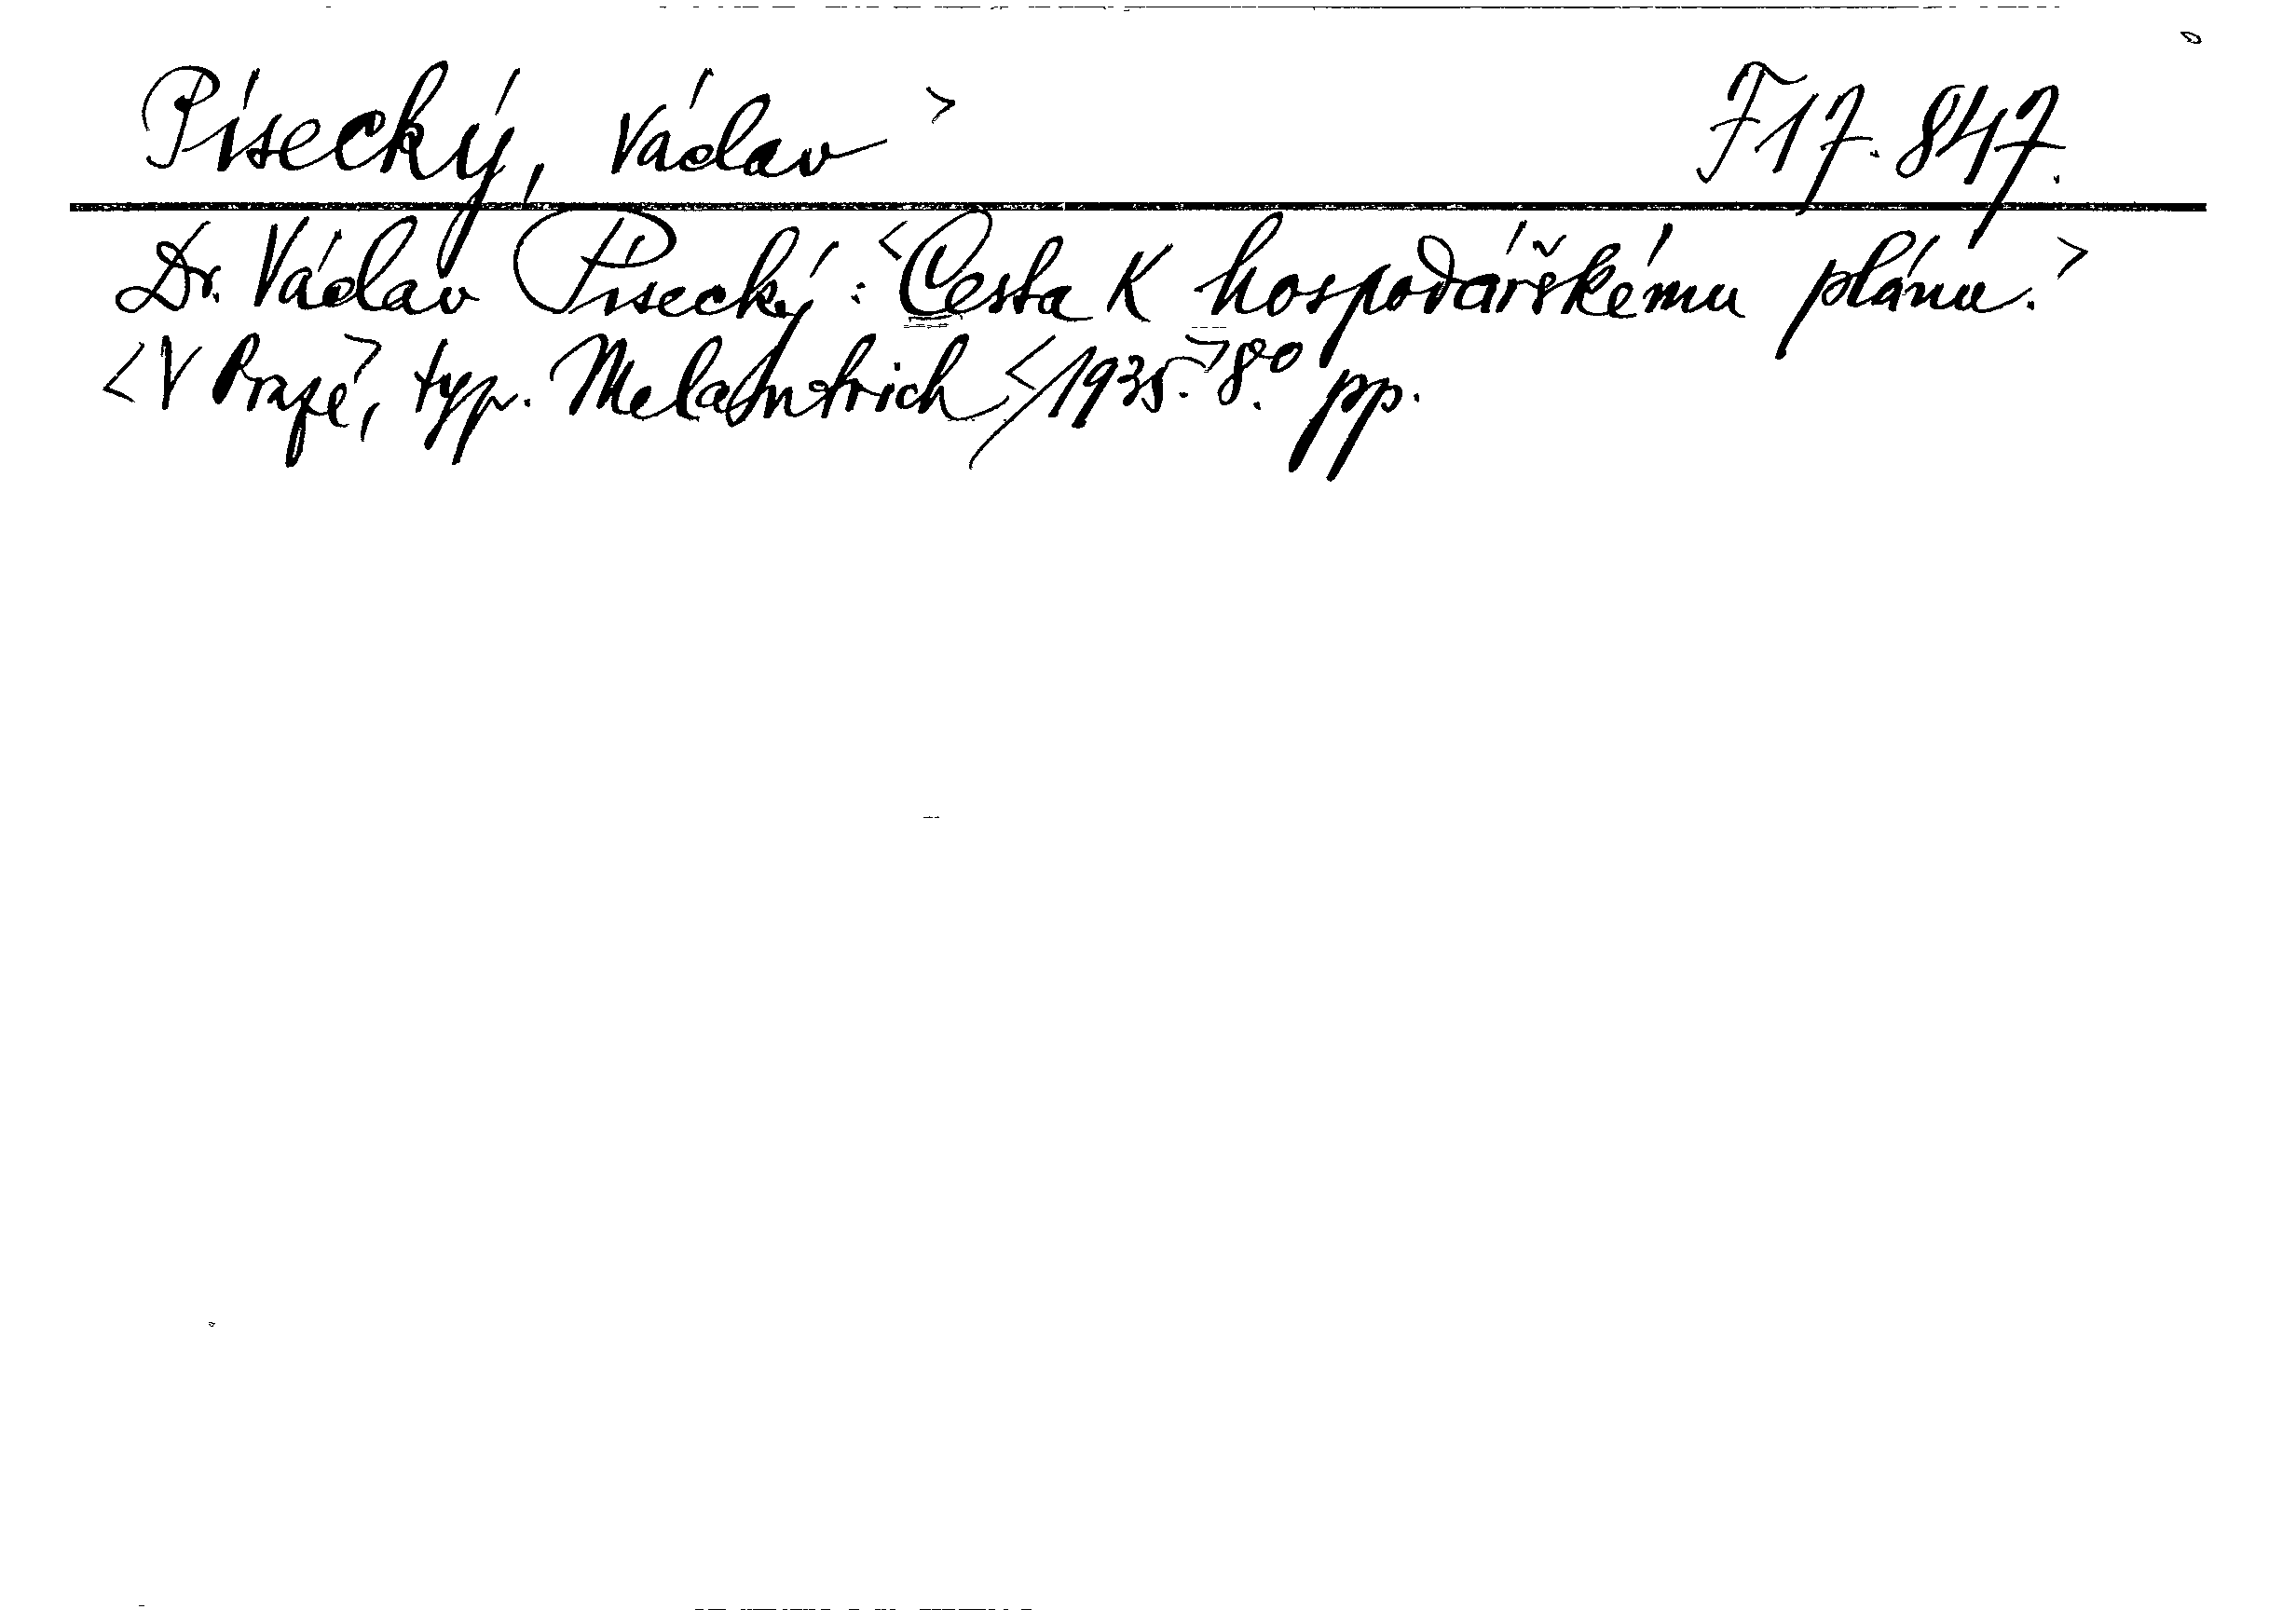 Písecký, Václav > F 17.847.
Dr. Václav Písecký: <Cesta k hospodářskému plánu.>
<V Praze>, typ. Melantrich, <1935.> 8.° pp.